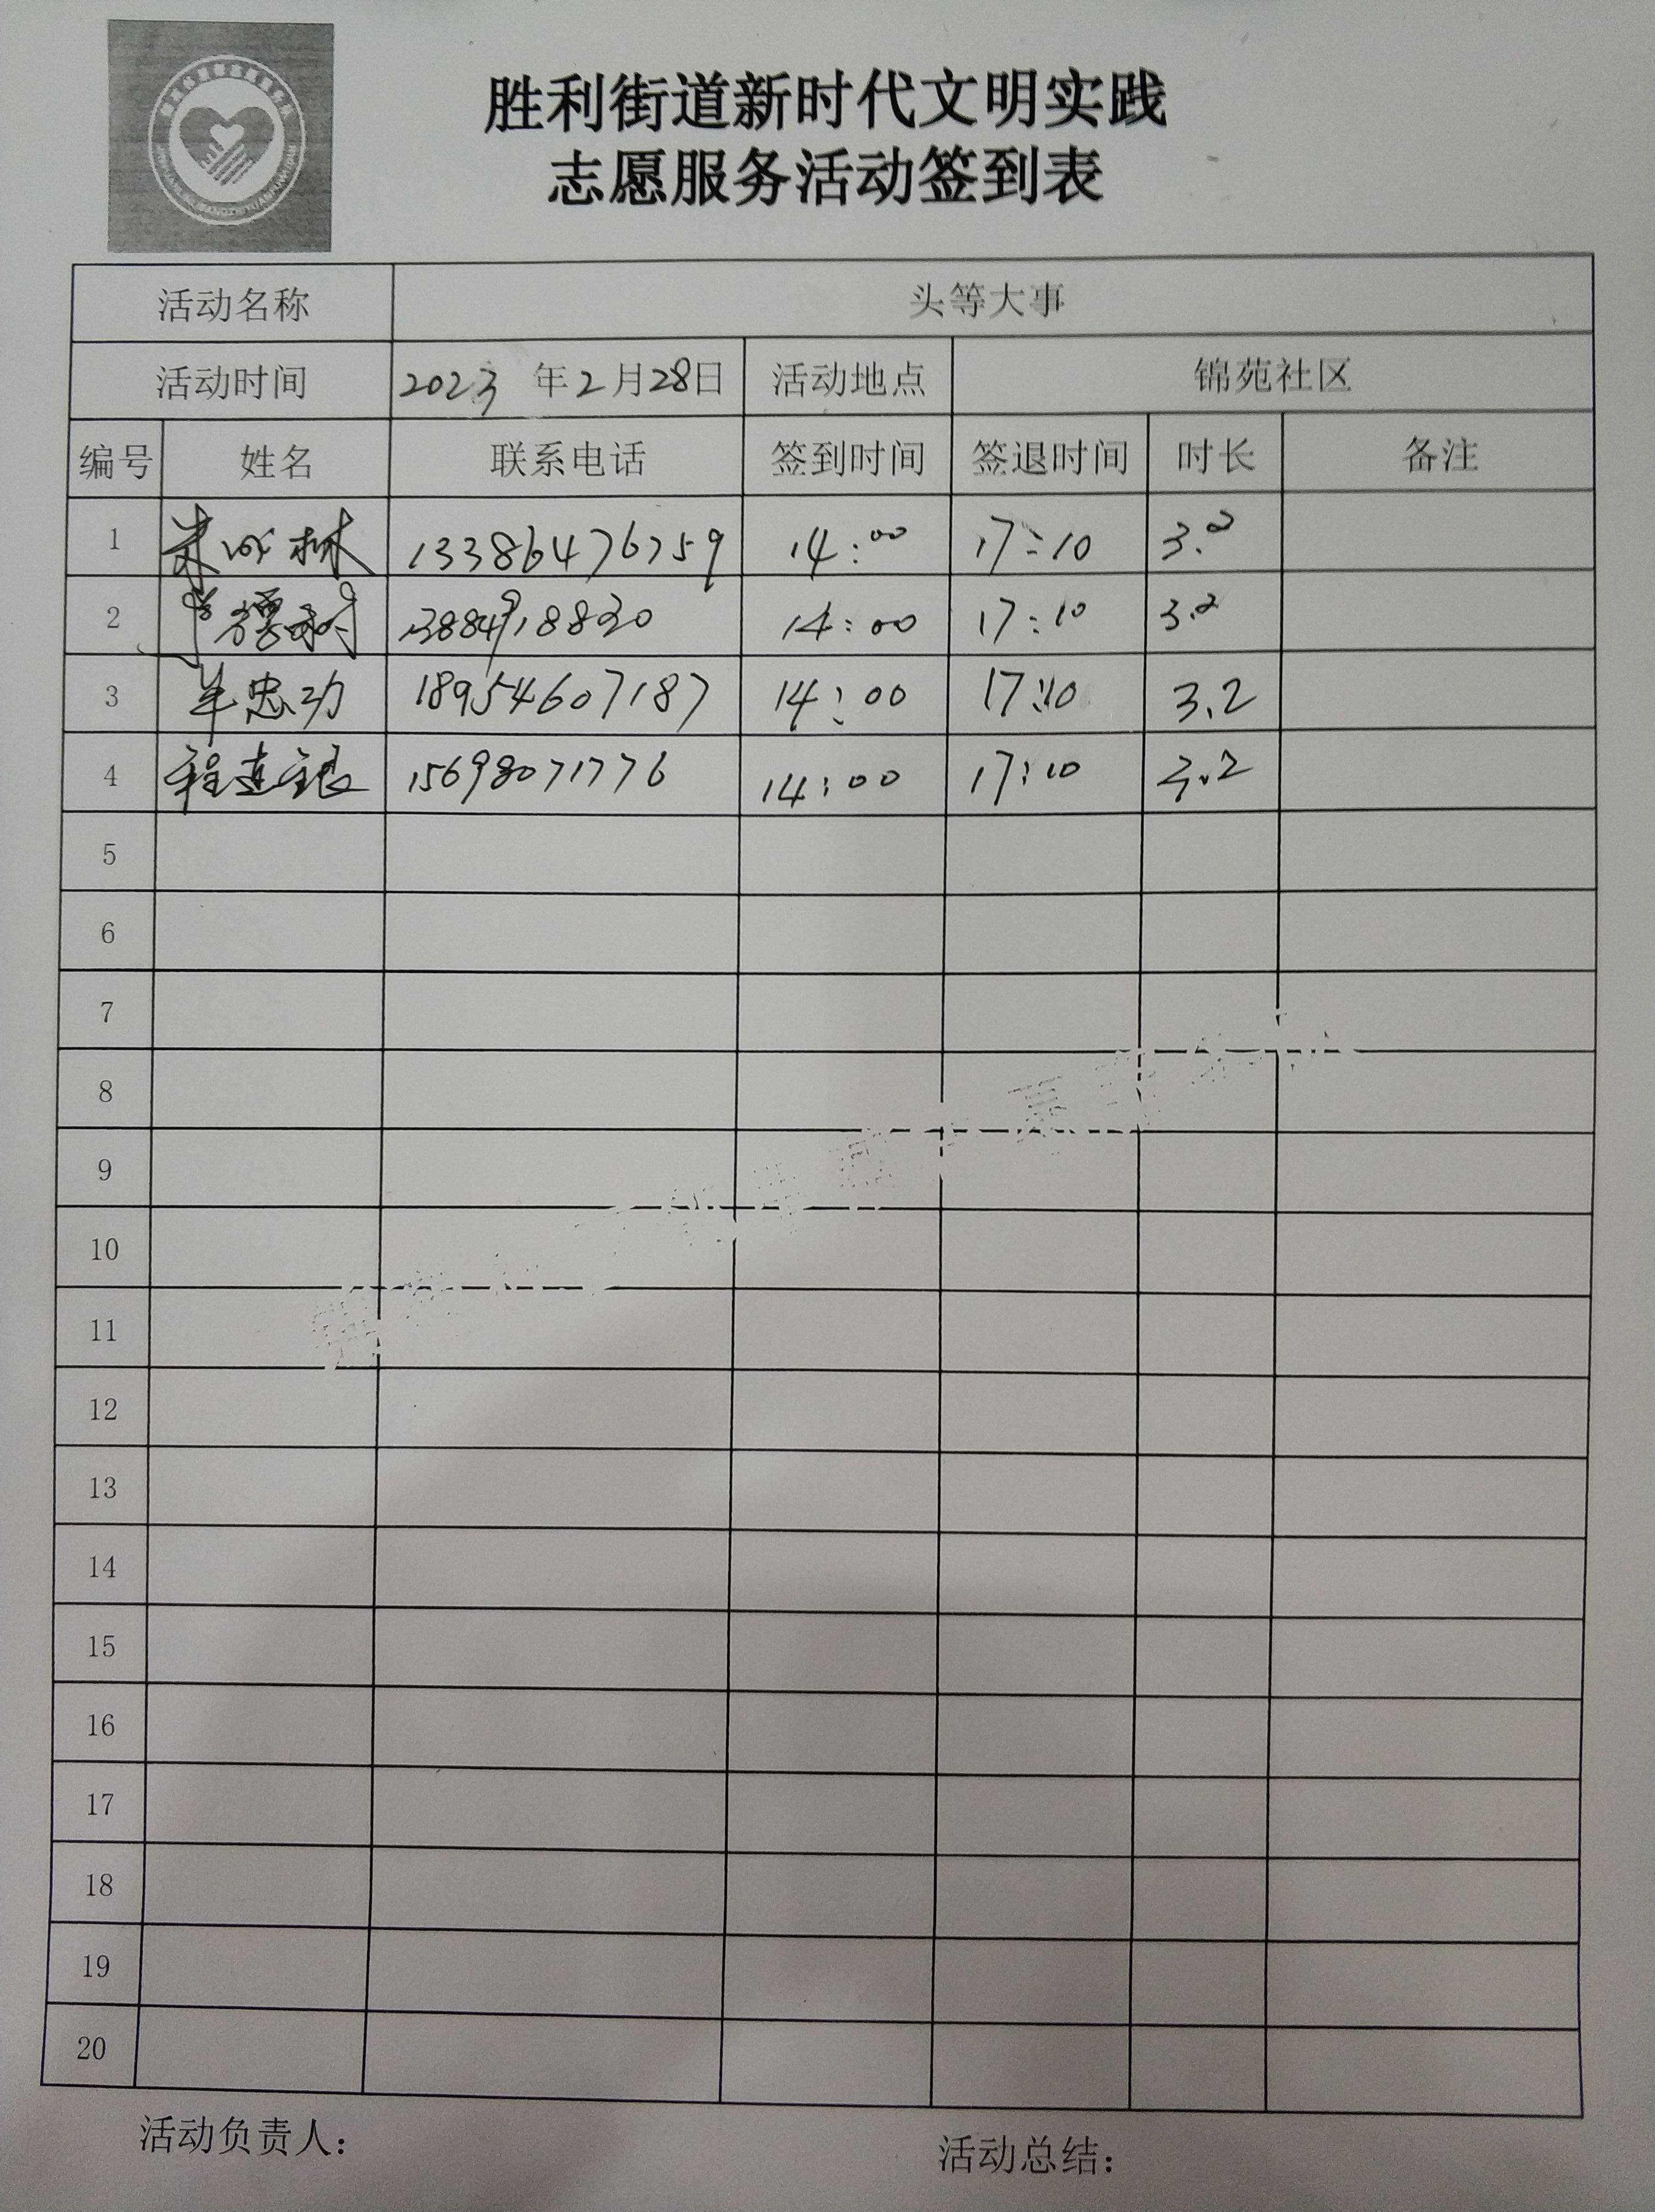 胜利街道新时代文明实践
志愿服务活动签到表
活动名称 头等大事
活动时间 2023 年 2 月 28 日 活动地点 锦苑社区
编号 姓名 联系电话 签到时间 签退时间 时长 备注
1 林 13386476759 14:00 17:10 3.2
2 德利 14:00 17:10 3.2
3 忠功 18954607187 14:00 17:10 3.2
4 程连银 15698071776 14:00 17:10 3.2
5
6
7
8
9
10
11
12
13
14
15
16
17
18
19
20
活动负责人： 活动总结：